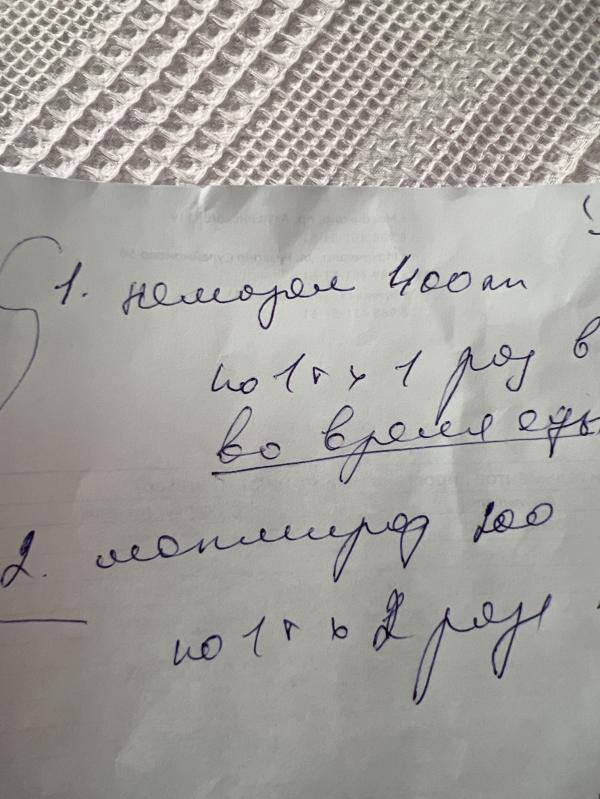 1. немозол 400 мг
по 1 т x 1 раз в
во время еды
2. макмирор 200
по 1 т x 2 раза